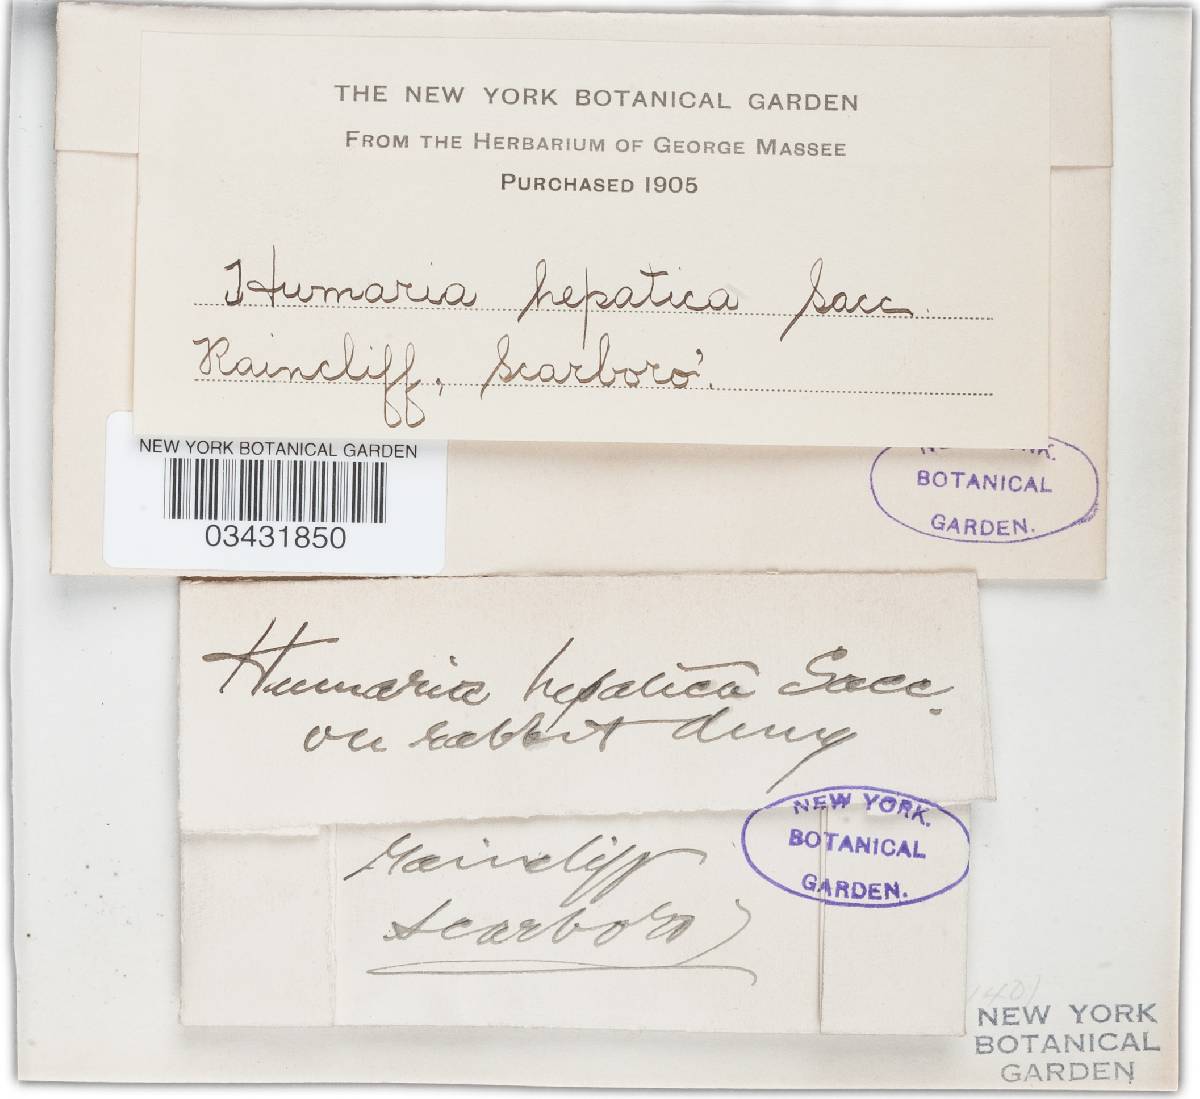 THE NEW YORK BOTANICAL GARDEN
FROM THE HERBARIUM OF GEORGE MASSEE
PURCHASED 1905
Humaria hepatica Sacc.
Raincliff, Scarboro'.
NEW YORK BOTANICAL GARDEN
03431850
NEW YORK.
BOTANICAL
GARDEN.
Humaria hepatica Sacc.
on rabbit dung
Raincliff
Scarboro'
NEW YORK.
BOTANICAL
GARDEN.
NEW YORK
BOTANICAL
GARDEN